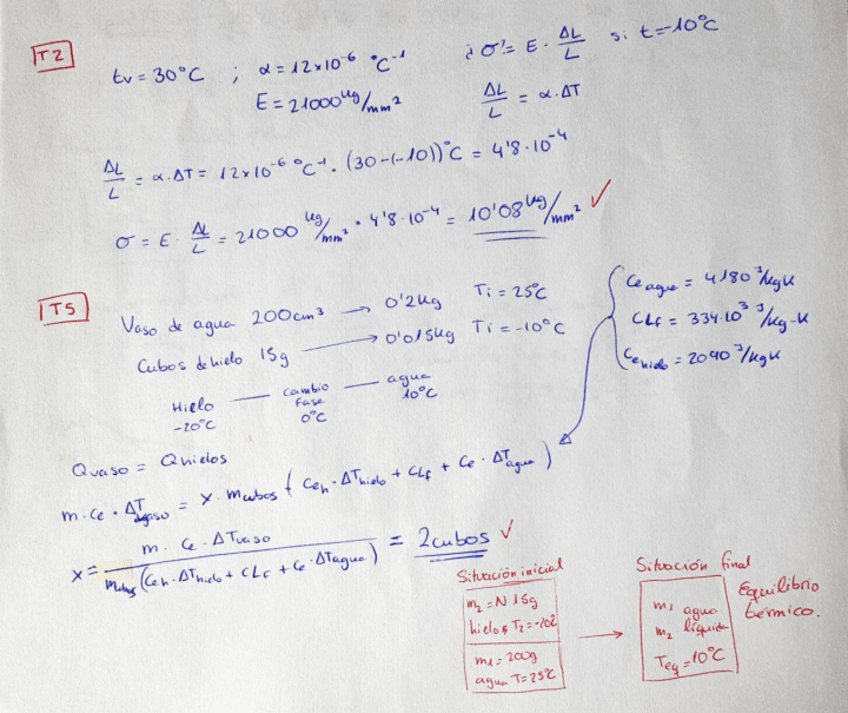 T2
tv = 30°C ; α = 12x10⁻⁶ °C⁻¹ ¿σ?= E · ΔL/L si t=-10°C
E = 21000 kg/mm² ΔL/L = α·ΔT
ΔL/L = α·ΔT = 12x10⁻⁶ °C⁻¹ · (30-(-10))°C = 4'8·10⁻⁴
σ = E · ΔL/L = 21000 kg/mm² · 4'8·10⁻⁴ = 10'08 kg/mm² ✓
T5
Vaso de agua 200cm³ → 0'2kg Ti = 25°C
Cubos de hielo 15g → 0'015kg Ti = -10°C
Ce agua = 4180 J/kgK
CLf = 334·10³ J/kg-K
Ce hielo = 2090 J/kgK
Hielo — cambio fase — agua
-20°C 0°C 10°C
Qvaso = Qhielos
m·Ce·ΔTvaso = x·mcubos (Ceh·ΔThielo + CLf + Ce·ΔTagua)
x = m·Ce·ΔTvaso / mcubos (Ceh·ΔThielo + CLf + Ce·ΔTagua) = 2cubos ✓
Situación inicial
m₂ = N 15g
hielo T₂=-20
m₁ = 200g
agua T=25°C
→
Situación final
m₁ agua
m₂ líquida
Teq=10°C
Equilibrio
térmico.